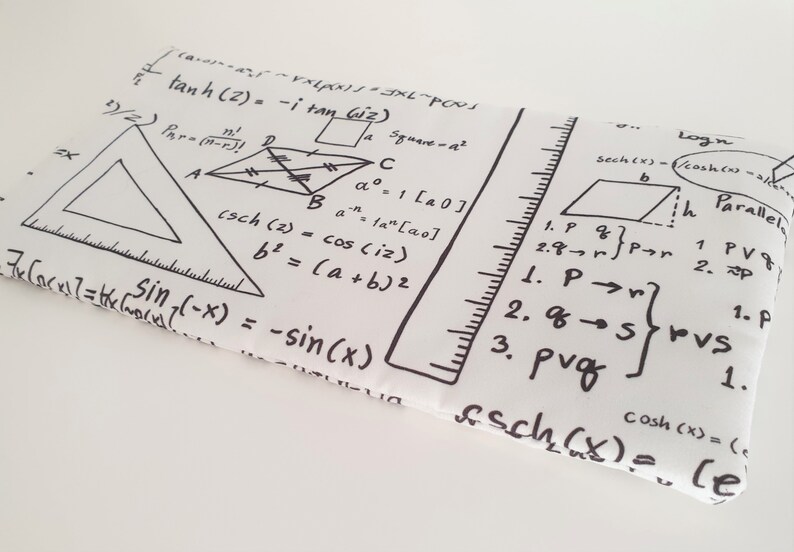 tanh(z) = -i tan (iz)
Pn,r = n!/(n-r)!
a
square = a²
D
A
C
B
a⁰ = 1 [a 0]
a⁻ⁿ = 1aⁿ [a0]
csch (z) = cos (iz)
b² = (a + b)²
sin (-x) = -sin(x)
Logn
sech(x) = 1/cosh(x) = 2/(e
b
h
Parallelo
1. P q
2. q → r
} P → r
1 P v q
2. ≈P
1. P → r
2. q → s
3. p v q
} r v s
1. P
1.
cosh (x) = (e
csch (x) = (e